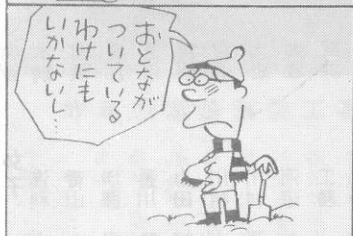 おとなが
ついている
わけにも
いかないし…